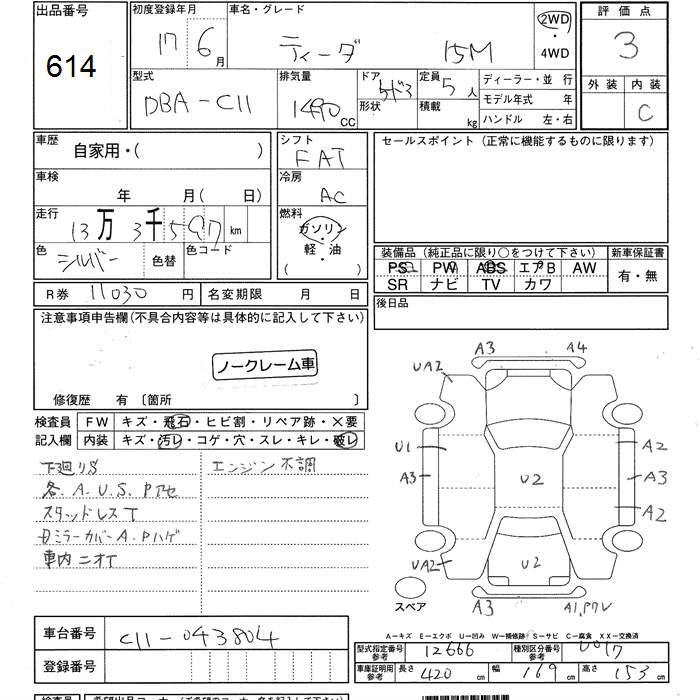 出品番号
614
初度登録年月
17 6月
車名・グレード
ティーダ 15M
2WD
・
4WD
評価点
3
外装 内装
C
型式
DBA-C11
排気量
1490CC
ドア 5ドア
形状
定員 5人
積載 kg
ディーラー・並 行
モデル年式 年
ハンドル 左・右
車歴
自家用・( )
車検
年 月(日)
走行
13万3千597km
色
シルバー
色替
色コード
シフト
FAT
冷房
AC
燃料
ガソリン
軽・油
( )
セールスポイント(正常に機能するものに限ります)
装備品(純正品に限り○をつけて下さい)
PS PW ABS エアB AW
SR ナビ TV カワ
新車保証書
有・無
後日品
R券 11030円
名変期限 月 日
注意事項申告欄(不具合内容等は具体的に記入して下さい)
ノークレーム車
修復歴 有〔箇所 〕
検査員
記入欄
FW キズ・飛石・ヒビ割・リペア跡・×要
内装 キズ・汚レ・コゲ・穴・スレ・キレ・破レ
下廻りS
各.A.U.S.Pアセ
スタッドレスT
ミラーカバーA.Pハゲ
車内ニオイ
エンジン不調
A3 A4
UA2
U1 A2
A3 U2 A3
A2
UA2 U2
スペア A3 A1,Pワレ
A-キズ E-エクボ U-凹み W-補修跡 S-サビ C-腐食 XX-交換済
車台番号
C11-043804
登録番号
型式指定番号
参考
12666
種別区分番号
参考
0017
車庫証明用
参考
長さ 420cm
幅 169cm
高さ 153cm